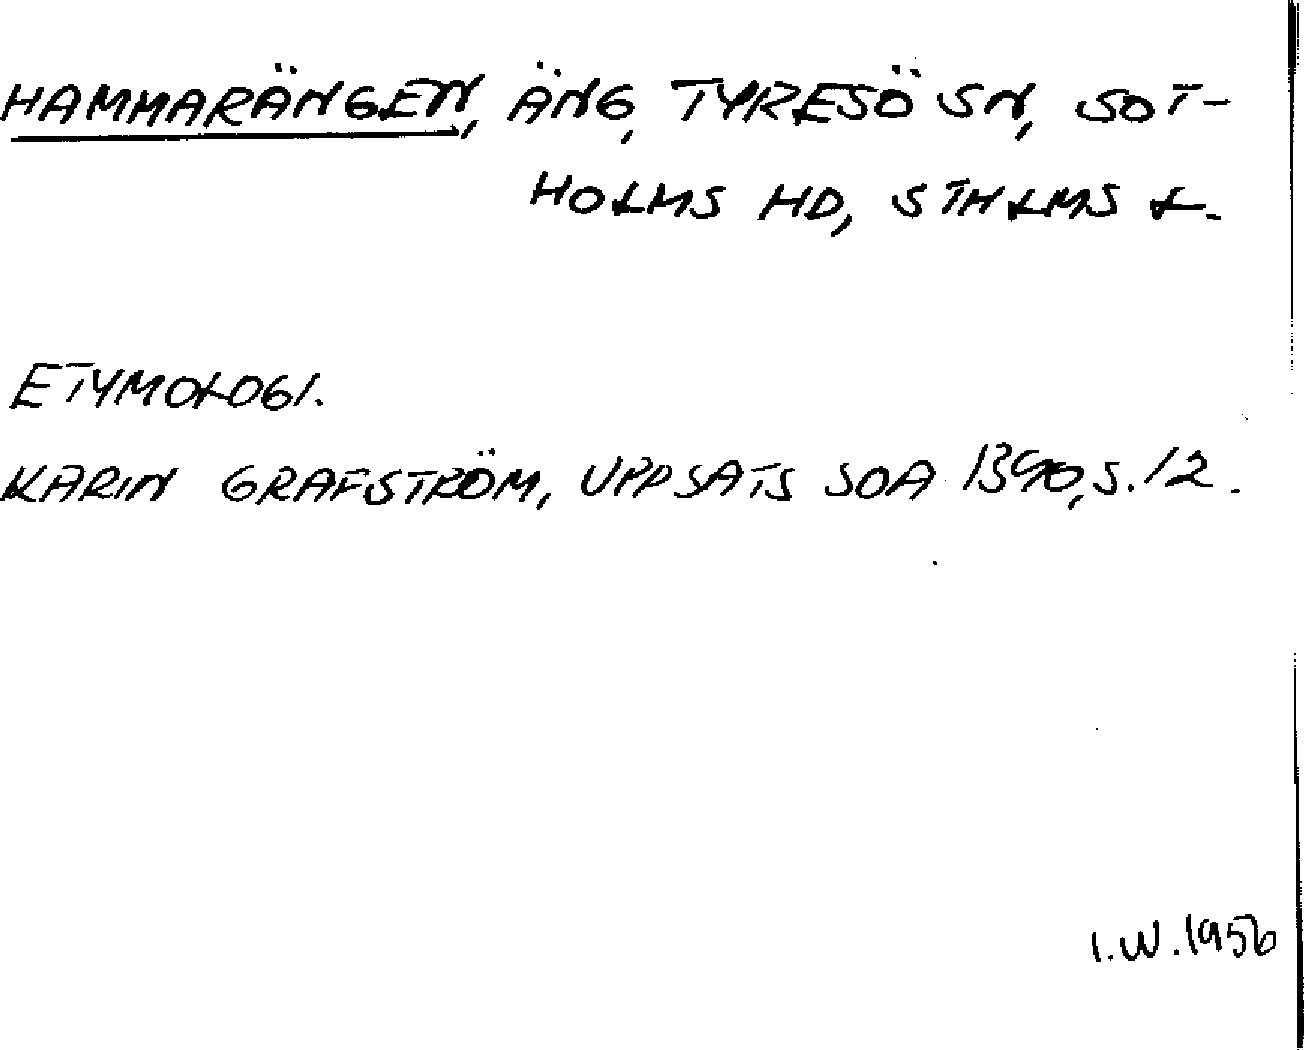 HAMMARÄNGEN, ÄNG, TYRESÖ SN, SOT-
HOLMS HD, STHLMS L.
ETYMOLOGI.
KARIN GRAFSTRÖM, UPPSATS SOA 1390, S. 12.
I.W. 1956